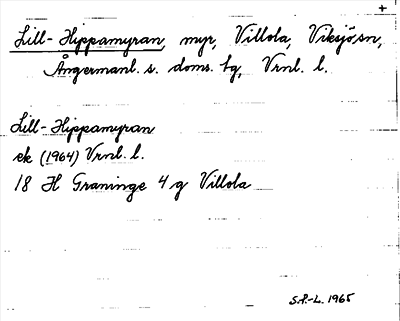 +
Lill-Hippamyran, myr, Villola, Viksjö sn,
Ångermanl. s. doms. bg, Vrnl. l.
Lill-Hippamyran
ek (1964) Vrnl. l.
18 H Graninge 4 g Villola
S.P.-L. 1965